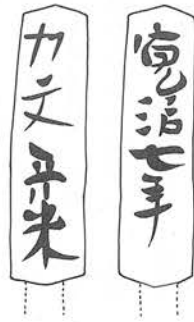 寛治七年
カ文
米